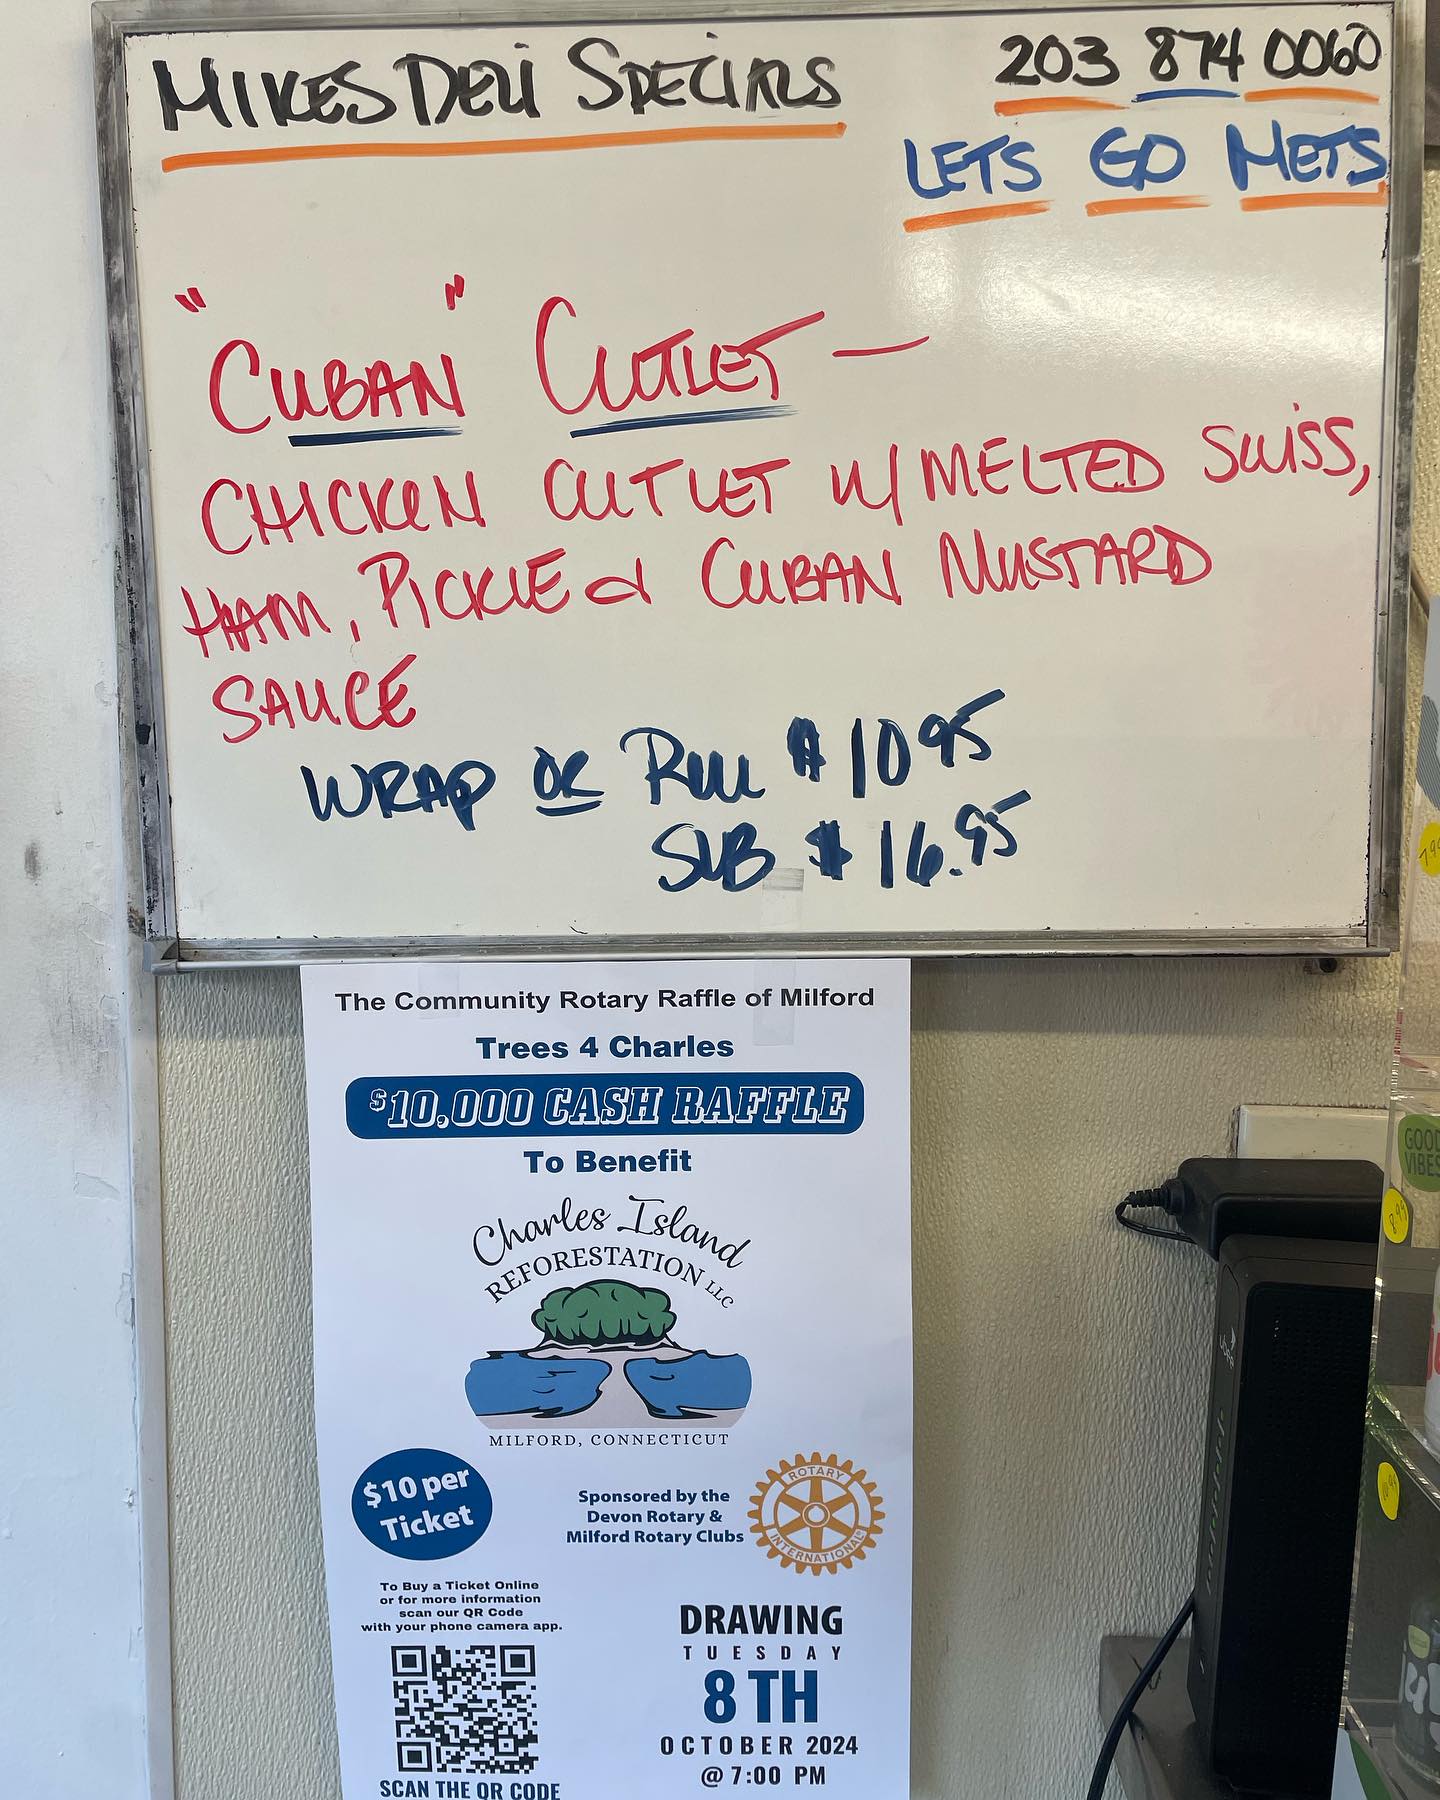 MIKES DELI SPECIALS
203 874 0060
LETS GO METS
"CUBAN" CUTLET —
CHICKEN CUTLET W/ MELTED SWISS,
HAM, PICKLE & CUBAN MUSTARD
SAUCE
WRAP OR ROLL $10.95
SUB $16.95
The Community Rotary Raffle of Milford
Trees 4 Charles
$10,000 CASH RAFFLE
To Benefit
Charles Island
REFORESTATION LLC
MILFORD, CONNECTICUT
$10 per
Ticket
Sponsored by the
Devon Rotary &
Milford Rotary Clubs
ROTARY
INTERNATIONAL
To Buy a Ticket Online
or for more information
scan our QR Code
with your phone camera app.
SCAN THE QR CODE
DRAWING
TUESDAY
8TH
OCTOBER 2024
@ 7:00 PM
GOOD
VIBES
8.99